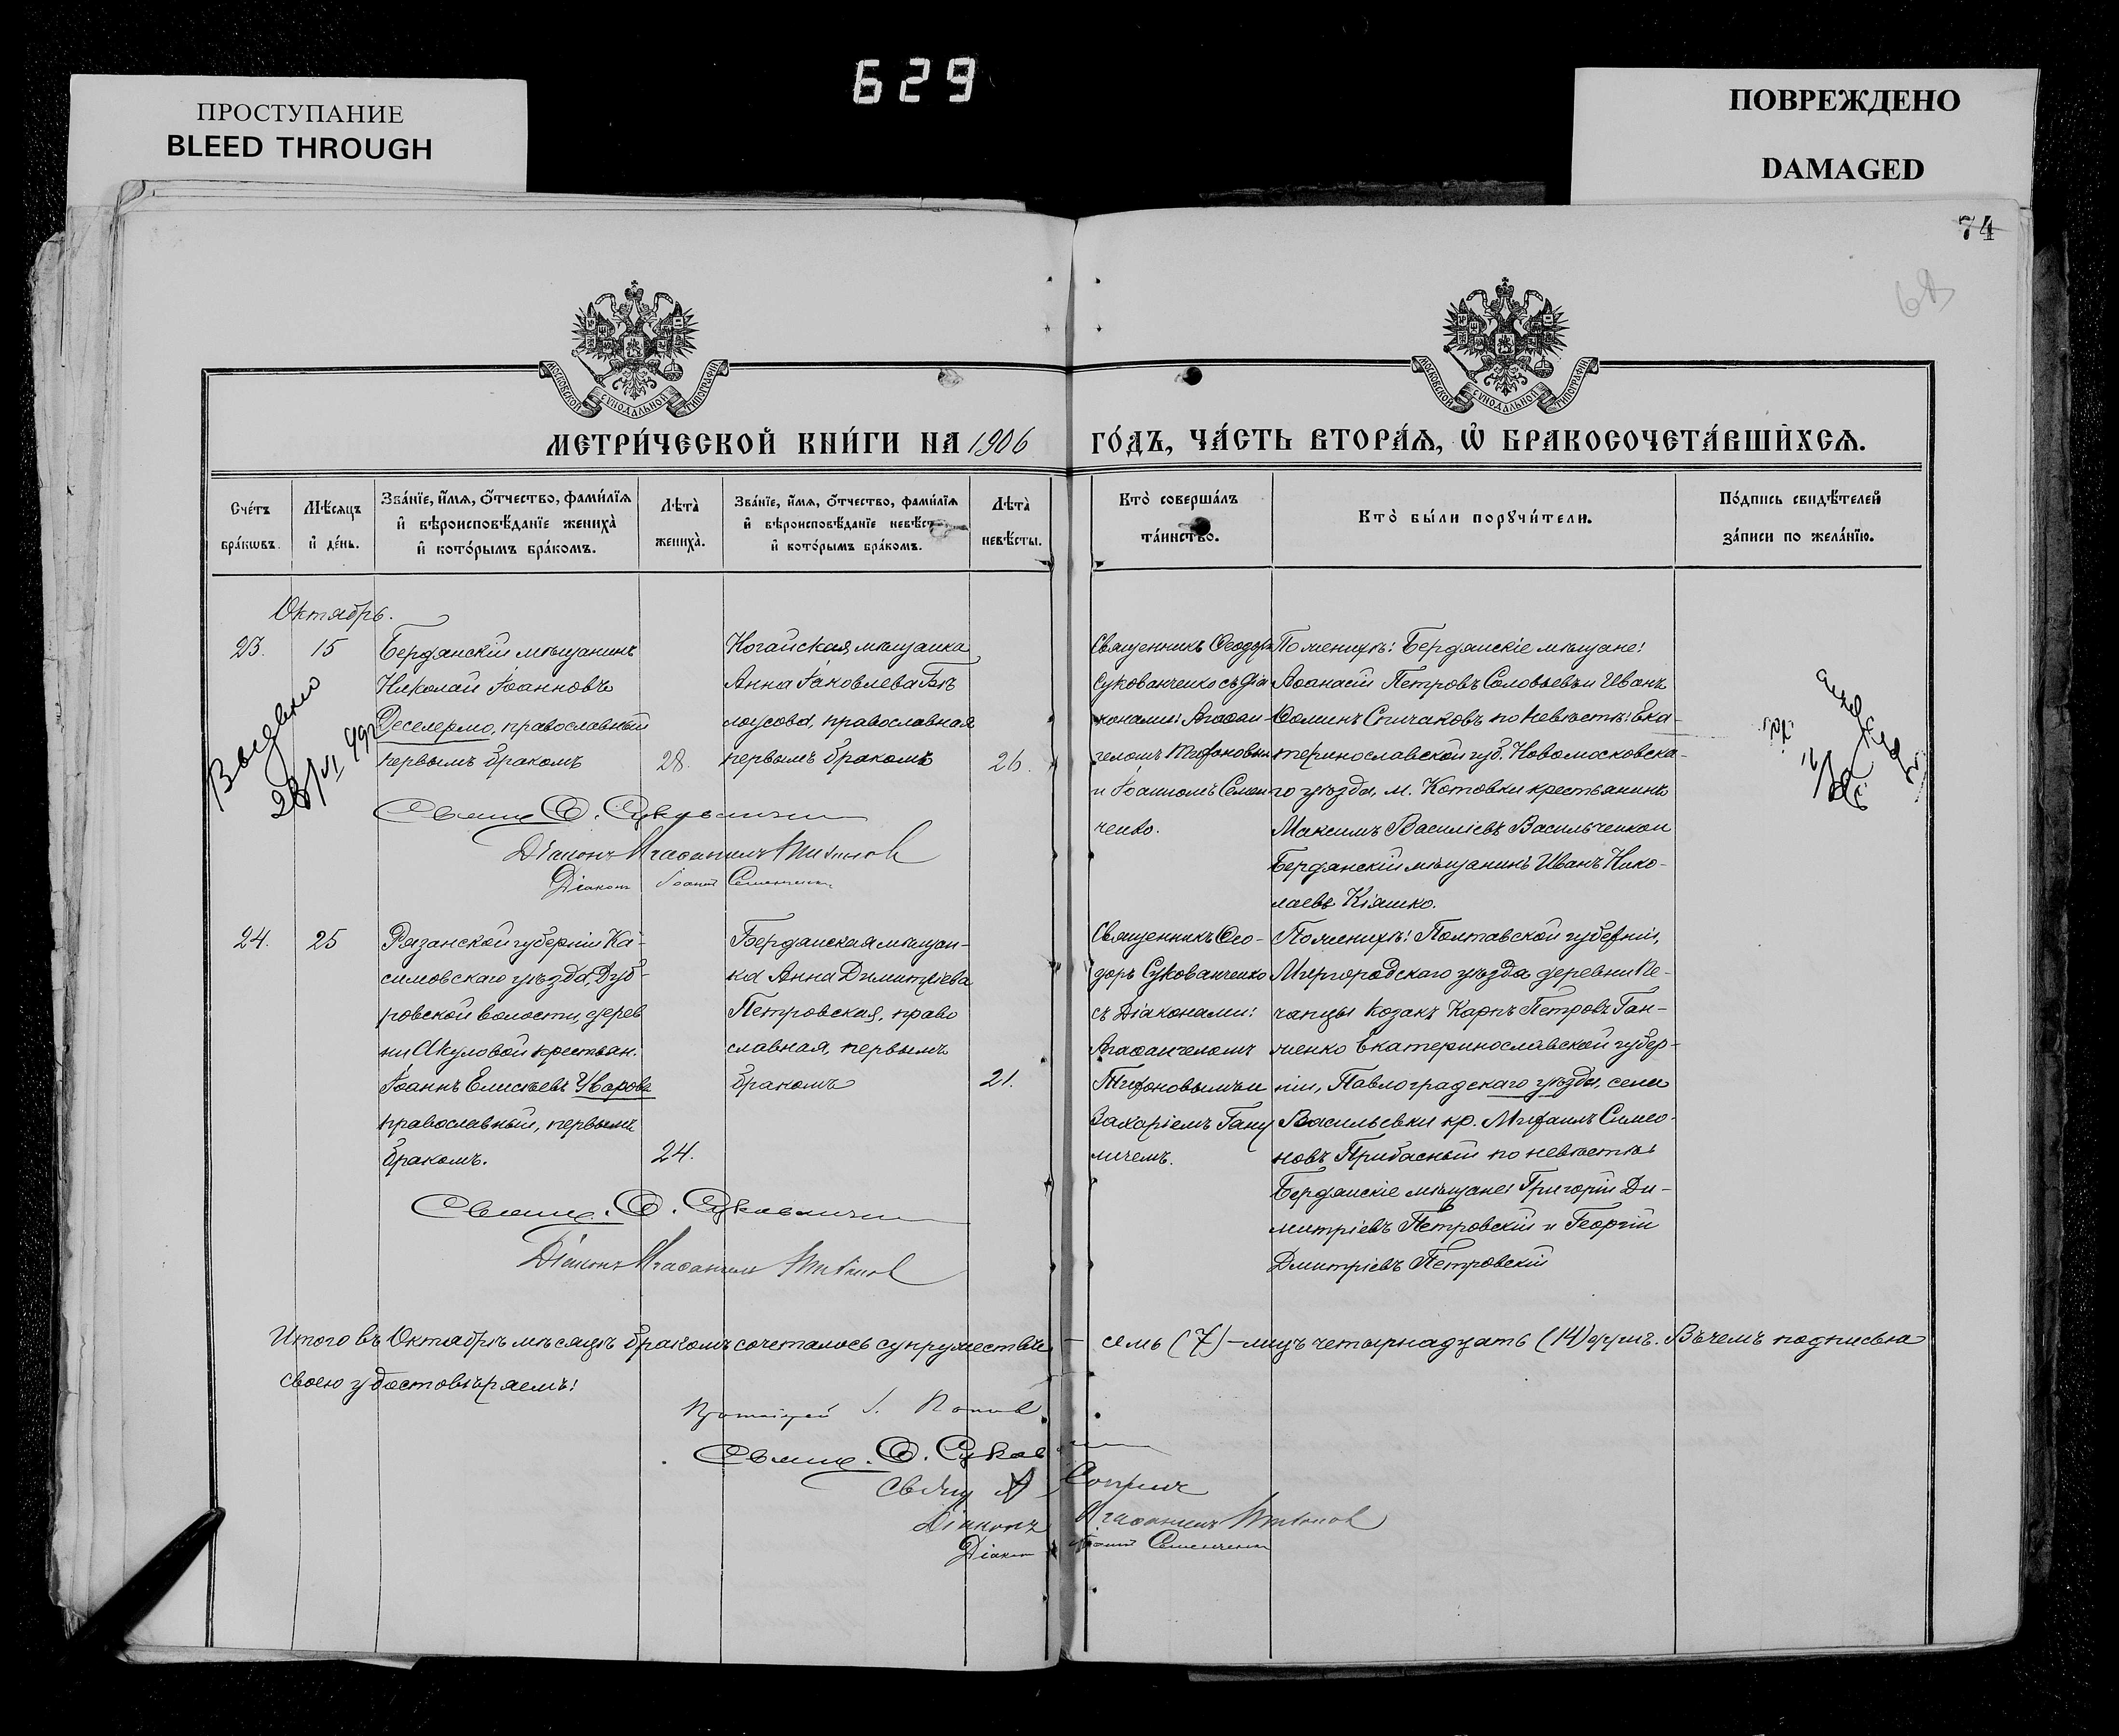 629
ПРОСТУПАНИЕ
BLEED THROUGH
ПОВРЕЖДЕНО
DAMAGED
74
68
МОСКОВСКОЙ СѴНОДАЛЬНОЙ ТИПОГРАФІИ
МОСКОВСКОЙ СѴНОДАЛЬНОЙ ТИПОГРАФІИ
МЕТРИ́ЧЕСКОЙ КНИ́ГИ НА 1906 ГО́ДЪ, ЧА́СТЬ ВТОРА́Ѧ, Ѽ БРАКОСОЧЕТА́ВШИХСѦ.
Сче́тъ бра́кѡвъ.
Мѣ́сѧцъ и҆ де́нь.
Зва́нїе, и҆́мѧ, ѻ҆́тчество, фами́лїѧ и҆ вѣроисповѣ́данїе жениха̀ и҆ кото́рымъ бра́комъ.
Лѣта̀ жениха̀.
Зва́нїе, и҆́мѧ, ѻ҆́тчество, фами́лїѧ и҆ вѣроисповѣ́данїе невѣ́ст и҆ кото́рымъ бра́комъ.
Лѣта̀ невѣ́сты.
Кто̀ соверша́лъ та́инство.
Кто̀ бы́ли порꙋчи́тели.
По́дпись свидѣ́телей за́писи по жела́нїю.
Октябрь.
23.
15
Бердянскій мѣщанинъ
Николай Іоанновъ
Деселермо, православный
первымъ бракомъ
28.
Ногайская мѣщанка
Анна Іаковлева Бѣ
лоусова, православная
первымъ бракомъ
26.
Священникъ Ѳеодоръ
Сукованченко съ діа
конами: Агаѳан-
геломъ
и Іоанномъ Семен
ченко.
По женихѣ: Бердянскіе мѣщане:
Аѳанасій Петровъ Соловьевъ и Иванъ
Ѳоминъ Спичаковъ по невѣстѣ: Ека-
теринославской губ. Новомосковска-
го уѣзда, м. Котовки крестьянинъ
Максимъ Василіевъ Васильченко и
Бердянскій мѣщанинъ Иванъ Нико-
лаевъ Кіяшко.
Выдано
Свящ. Ѳ. Сукованченко
Діаконъ Агаѳангелъ
Діаконъ Іоаннъ Семенченко
24.
25
Рязанской губерніи Ка-
симовскаго уѣзда, Дуб-
ровской волости, дерев
ни Акуловой крестьян.
Іоаннъ Елисѣевъ Уваровъ
православный, первымъ
бракомъ.
24.
Бердянская мѣщан-
ка Анна Димитріева
Петровская, право
славная, первымъ
бракомъ
21.
Священникъ Ѳео-
доръ Сукованченко
съ Діаконами:
Агаѳангеломъ
Захаріемъ Гану
личемъ.
По женихѣ: Полтавской губерніи,
Миргородскаго уѣзда деревни Пе-
чанцы козакъ Карпъ Петровъ Ган-
женко Екатеринославской губер-
ніи, Павлоградскаго уѣзда, села
Васильевки кр. Михаилъ Симео-
новъ Прибасный по невѣстѣ:
Бердянскіе мѣщане: Григорій Ди-
митріевъ Петровскій и Георгій
Дмитріевъ Петровскій
Свящ. Ѳ. Сукованченко
Діаконъ Агаѳангелъ
Итого въ Октябрѣ мѣсяцѣ бракомъ сочеталось супружествъ — семь (7) — лицъ четырнадцать (14) душъ. Въ чемъ подписью
своею удостовѣряемъ:
Протоіерей І. Попов
Свящ. Ѳ. Суков
Свящ
Діаконъ Агаѳангелъ
Діакон Іоаннъ Семенченко